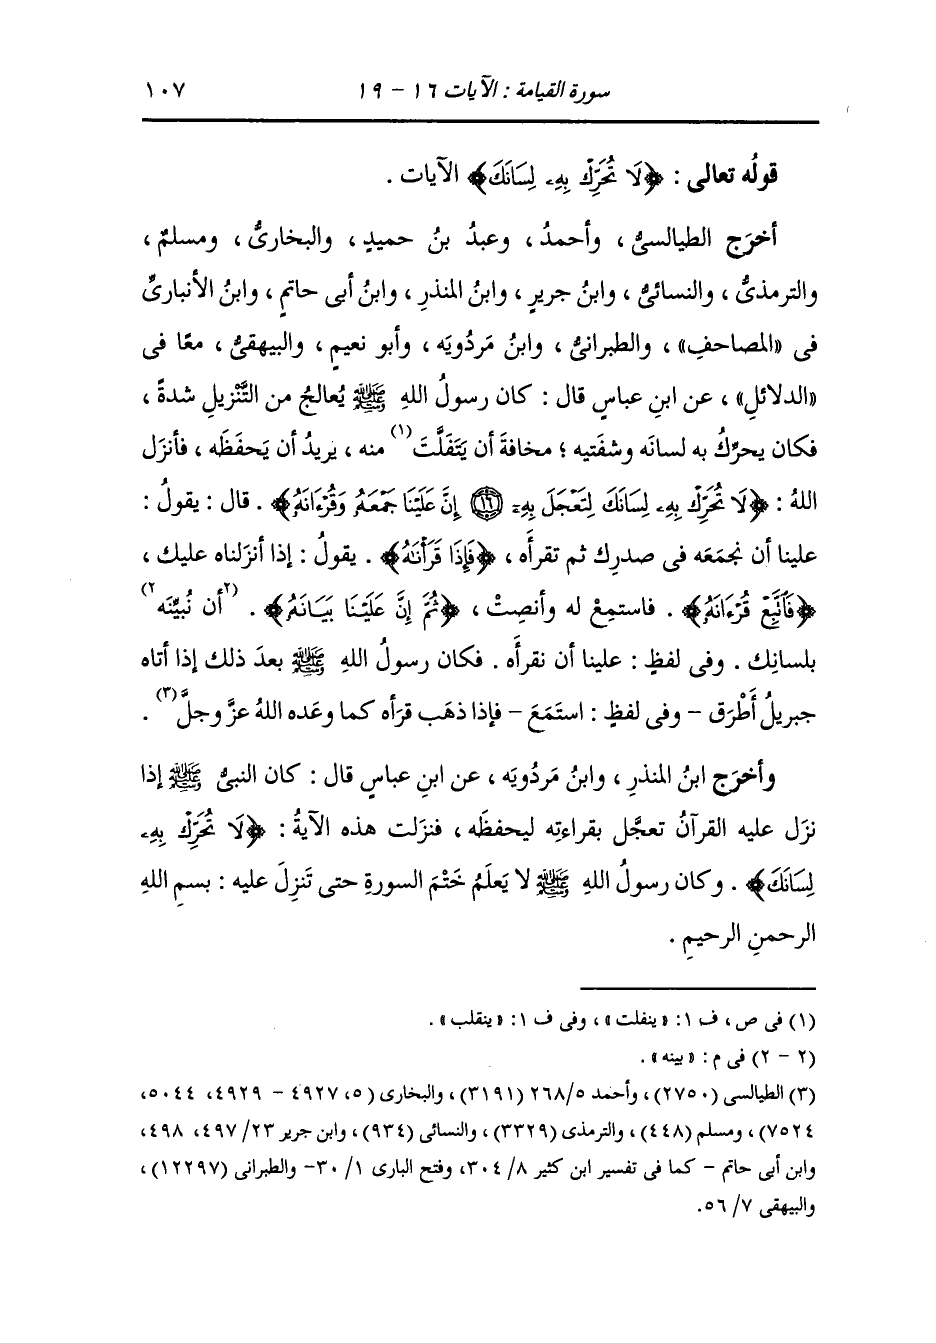 سورة القيامة : الآيات ١٦ - ١٩
١٠٧
قولُه تعالى : ﴿لَا تُحَرِّكْ بِهِۦ لِسَانَكَ﴾ الآيات .
أخرَج الطيالسىُّ ، وأحمدُ ، وعبدُ بنُ حميدٍ ، والبخارىُّ ، ومسلمٌ ،
والترمذىُّ ، والنسائىُّ ، وابنُ جريرٍ ، وابنُ المنذرِ ، وابنُ أبى حاتمٍ ، وابنُ الأنبارىِّ
فى «المصاحفِ» ، والطبرانىُّ ، وابنُ مَردُويَه ، وأبو نعيمٍ ، والبيهقىُّ ، معًا فى
«الدلائلِ» ، عن ابنِ عباسٍ قال : كان رسولُ اللهِ ﷺ يُعالجُ من التَّنْزيلِ شدةً ،
فكان يحرِّكُ به لسانَه وشفتَيه ؛ مخافةَ أن يَتَفَلَّتَ(١) منه ، يريدُ أن يَحفَظَه ، فأنزَل
اللهُ : ﴿لَا تُحَرِّكْ بِهِۦ لِسَانَكَ لِتَعْجَلَ بِهِۦٓ ۝١٦ إِنَّ عَلَيْنَا جَمْعَهُۥ وَقُرْءَانَهُۥ﴾ . قال : يقولُ :
علينا أن نجمَعَه فى صدرِك ثم تقرأَه ، ﴿فَإِذَا قَرَأْنَٰهُ﴾ . يقولُ : إذا أنزَلناه عليك ،
﴿فَٱتَّبِعْ قُرْءَانَهُۥ﴾ . فاستمِعْ له وأنصِتْ ، ﴿ثُمَّ إِنَّ عَلَيْنَا بَيَانَهُۥ﴾ . (٢أن نُبيِّنَه٢)
بلسانِك . وفى لفظٍ : علينا أن نقرأَه . فكان رسولُ اللهِ ﷺ بعدَ ذلك إذا أتاه
جبريلُ أَطْرَق - وفى لفظٍ : استَمَعَ - فإذا ذهَب قرَأه كما وعَده اللهُ عزَّ وجلَّ(٣) .
وأخرَج ابنُ المنذرِ ، وابنُ مَردُويَه ، عن ابنِ عباسٍ قال : كان النبىُّ ﷺ إذا
نزَل عليه القرآنُ تعجَّل بقراءتِه ليحفظَه ، فنزَلت هذه الآيةُ : ﴿لَا تُحَرِّكْ بِهِۦ
لِسَانَكَ﴾ . وكان رسولُ اللهِ ﷺ لا يَعلَمُ خَتْمَ السورةِ حتى تَنزِلَ عليه : بسمِ اللهِ
الرحمنِ الرحيمِ .
(١) فى ص، ف ١: «ينفلت» ، وفى ف ١: «ينقلب» .
(٢ - ٢) فى م : «بينه» .
(٣) الطيالسى (٢٧٥٠) ، وأحمد ٢٦٨/٥ (٣١٩١) ، والبخارى (٥، ٤٩٢٧ - ٤٩٢٩، ٥٠٤٤،
٧٥٢٤) ، ومسلم (٤٤٨) ، والترمذى (٣٣٢٩) ، والنسائى (٩٣٤) ، وابن جرير ٢٣/ ٤٩٧، ٤٩٨،
وابن أبى حاتم - كما فى تفسير ابن كثير ٨/ ٣٠٤، وفتح البارى ١/ ٣٠- والطبرانى (١٢٢٩٧) ،
والبيهقى ٧/ ٥٦.